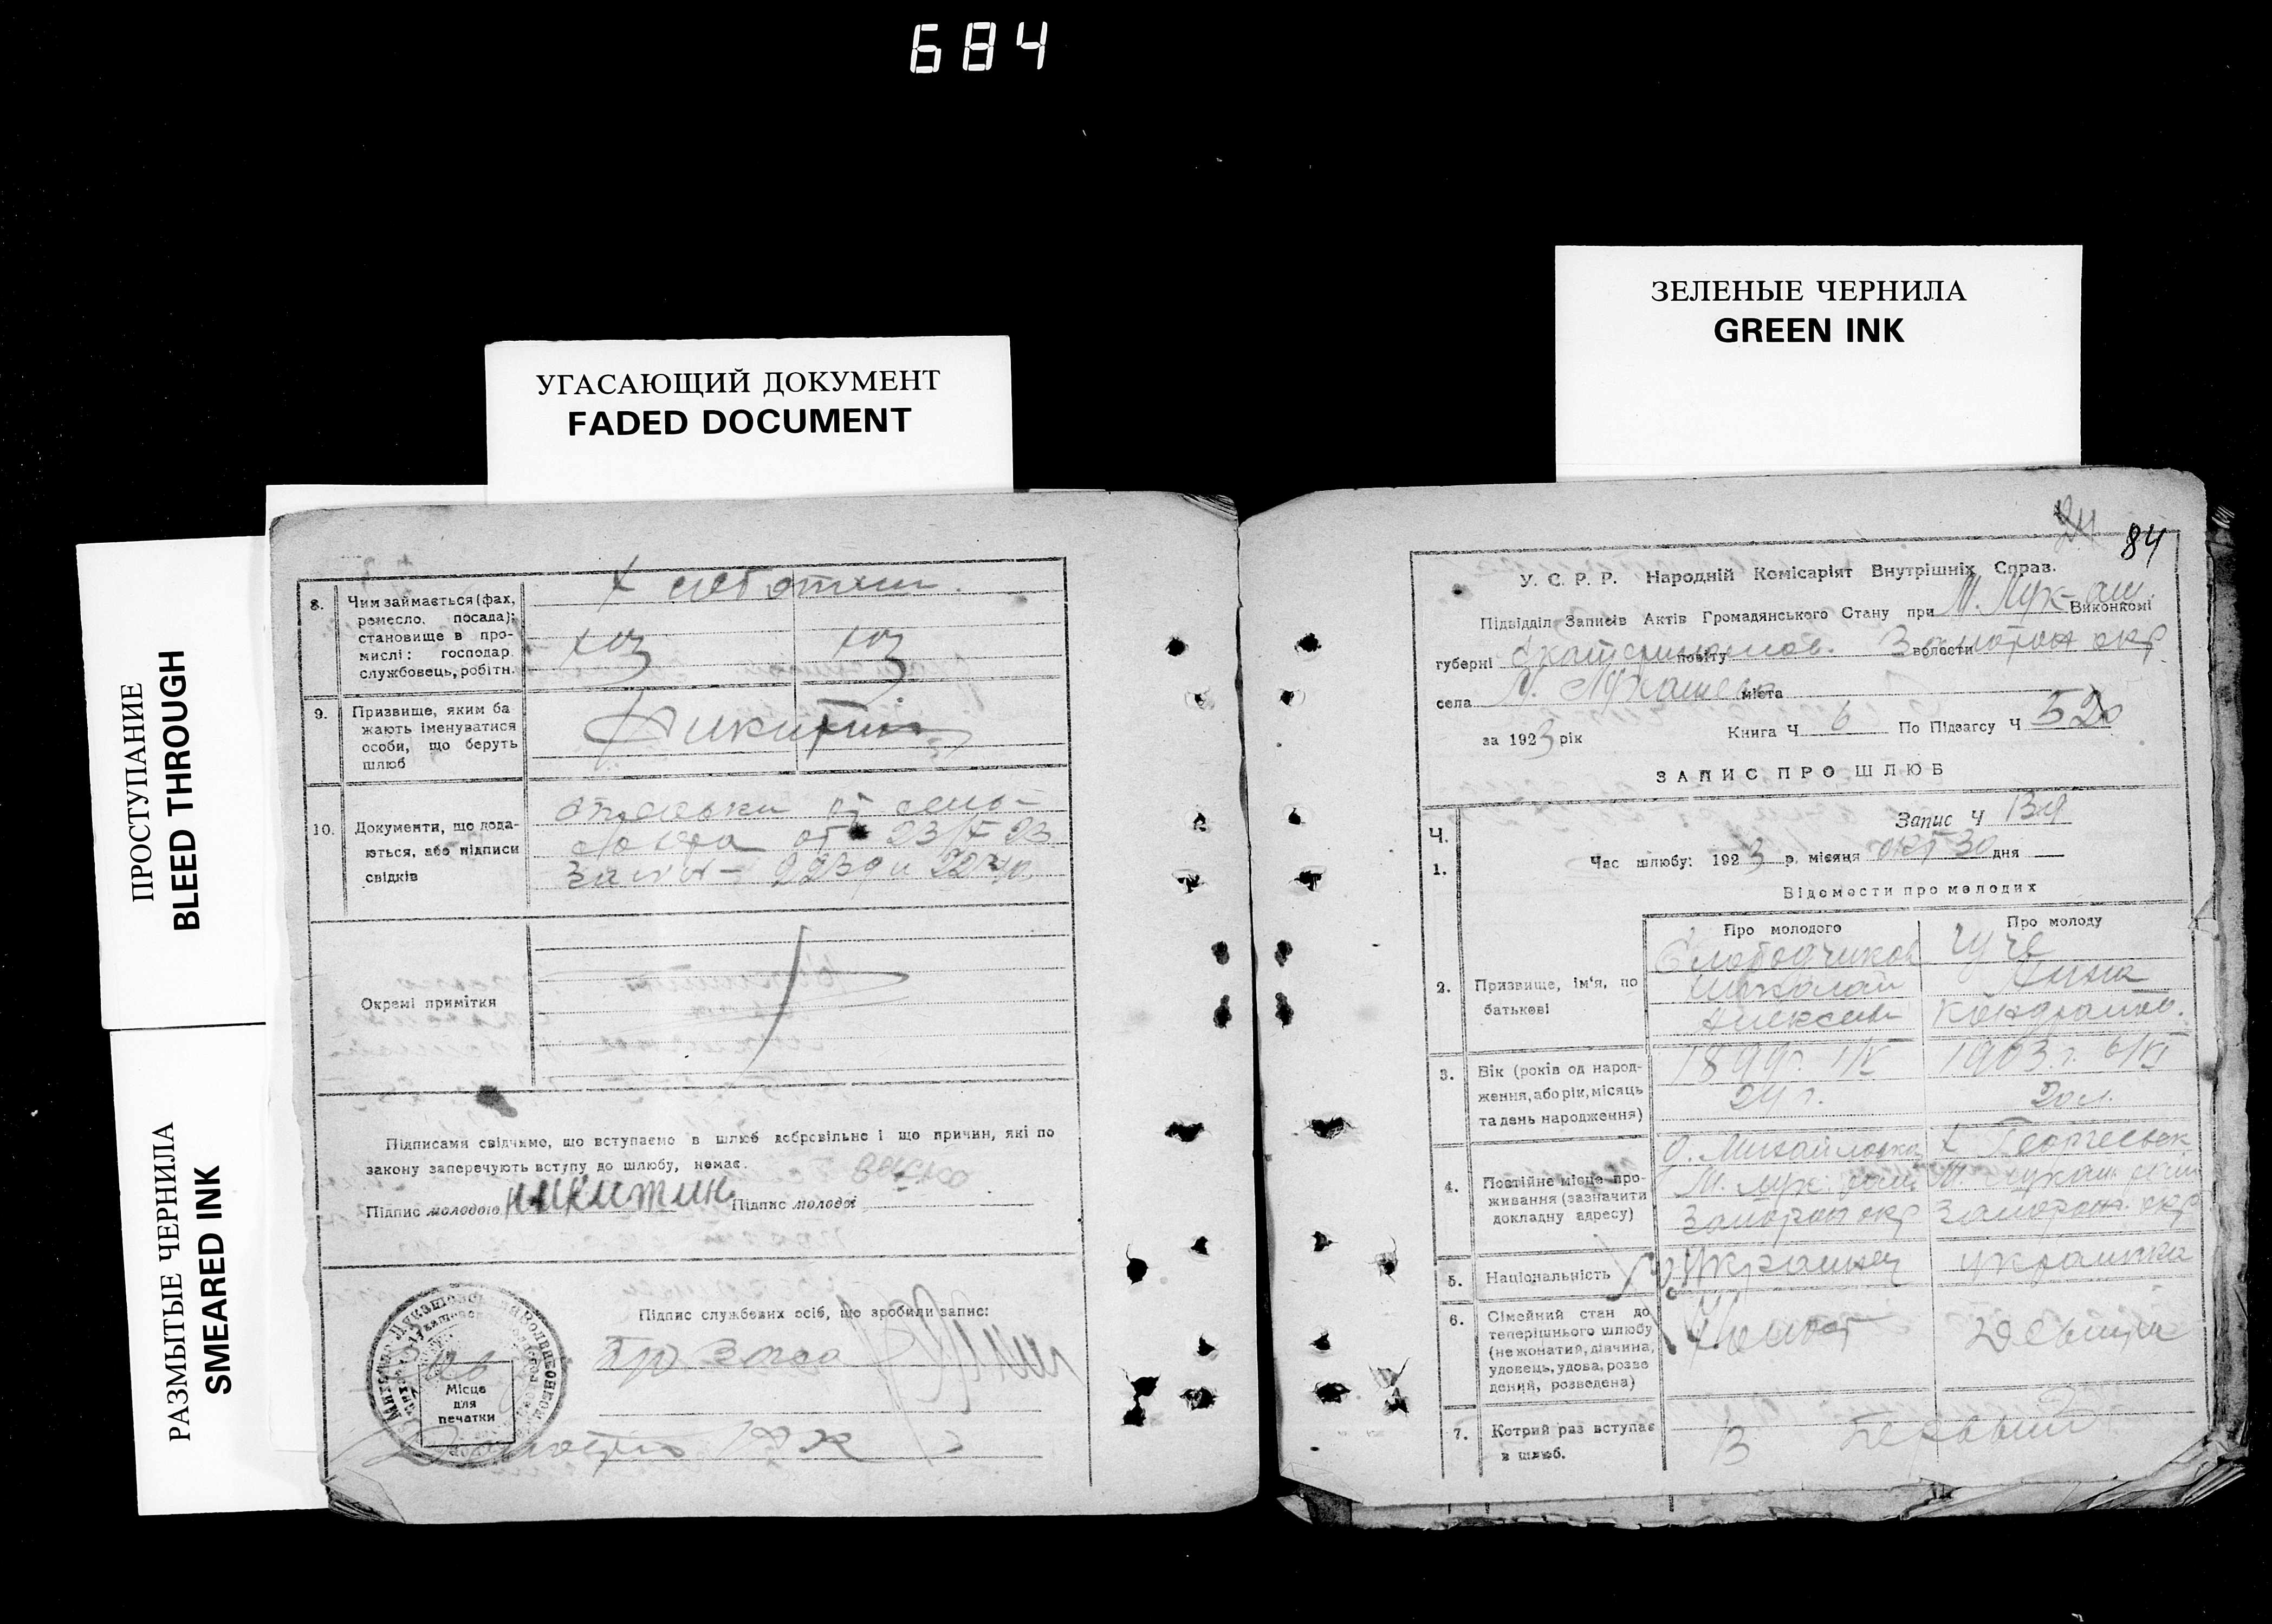 684
ЗЕЛЕНЫЕ ЧЕРНИЛА
GREEN INK
УГАСАЮЩИЙ ДОКУМЕНТ
FADED DOCUMENT
ПРОСТУПАНИЕ
BLEED THROUGH
РАЗМЫТЫЕ ЧЕРНИЛА
SMEARED INK
8. Чим займається (фах,
ремесло, посада);
становище в про-
мислі: господар.
службовець, робітн.
хоз хоз
9. Призвище, яким ба
жають іменуватися
особи, що беруть
шлюб
Никитин
10. Документи, що дода-
ються, або підписи
свідків
от 23/X 23
2239 и
Окремі примітки
Підписами свідчимо, що вступаємо в шлюб добровільно і що причин, які по
закону заперечують вступу до шлюбу, немає.
Підпис молодого никитин Підпис молодої
Підпис службових осіб, що зробили запис:
Місце
для
печатки
24
84
У. С. Р. Р. Народній Комісаріят Внутрішніх Справ.
Підвідділ Записів Актів Громадянського Стану при М. Лукаш Виконкомі
губерні Екатеринослав. повіту волости Запорож окр
села М. Лукашевк міста
за 1923 рік Книга Ч 6 По Підзагсу Ч 520
ЗАПИС ПРО ШЛЮБ
Ч. Запис Ч
1. Час шлюбу: 1923 р. місяця окт 30 дня
Відомости про молодих
Про молодого Про молоду
2. Призвище, ім'я, по
батькові
Слободчиков
Николай Анна
Алексеев Кондратов.
3. Вік (років од народ-
ження, або рік, місяць
та день народження)
1899 г. 1903 г. 6/XI
24 г. 20 л.
4. Постійне місце про-
живання (зазначити
докладну адресу)
д. Михайловка х Георгиевск
М. Лук. рай М. Лукаш. рай
Запорож окр Запорож. окр
5. Національність украинец украинка
6. Сімейний стан до
теперішнього шлюбу
(не жонатий, дівчина,
удовець, удова, розве
дений, розведена)
Холост Девица
7. Котрий раз вступає
в шлюб.
В первый